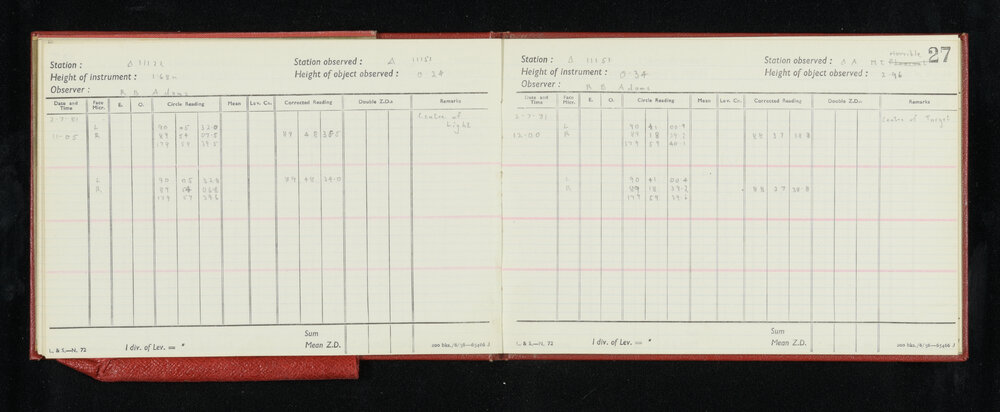 Station : Δ 11122
Station observed : Δ 11151
Height of instrument : 1.68m
Height of object observed : 0.34
Observer : R B Adams
Date and Time Face Micr. E. O. Circle Reading Mean Lev. Cn. Corrected Reading Double Z.D.s Remarks
2-7-81 Centre of
L 90 05 32.0 Light
11-05 R 89 54 07.5 89 48 35.5
179 59 39.5
L 90 05 32.8 89 48 34.0
R 89 54 06.8
179 59 39.6
Sum
Mean Z.D.
L. & S.—N. 72 1 div. of Lev. = "
200 bks./8/58—65466 J
27
Station : Δ 11151
Horrible
Station observed : Δ A Mt
Height of instrument : 0.34
Height of object observed : 2.96
Observer : R B Adams
Date and Time Face Micr. E. O. Circle Reading Mean Lev. Cn. Corrected Reading Double Z.D.s Remarks
2-7-81 Centre of Target
L 90 41 00.9
12-00 R 89 18 39.2 88 37 38.8
179 59 40.1
L 90 41 00.4
R 89 18 39.2 88 37 38.8
179 59 39.6
Sum
Mean Z.D.
L. & S.—N. 72 1 div. of Lev. = "
200 bks./8/58—65466 J